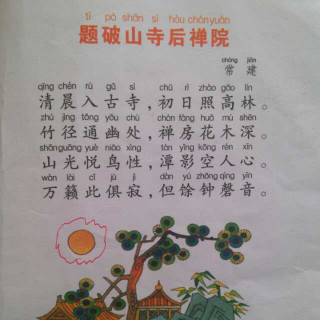 tí pò shān sì hòu chányuàn
题破山寺后禅院
cháng jiàn
常 建
qīng chén rù gǔ sì chū rì zhào gāo lín
清晨入古寺，初日照高林。
zhú jìng tōng yōu chù chán fáng huā mù shēn
竹径通幽处，禅房花木深。
shānguāng yuè niǎo xìng tán yǐng kōng rén xīn
山光悦鸟性，潭影空人心。
wàn lài cǐ jù jì dàn yú zhōng qìng yīn
万籁此俱寂，但馀钟磬音。